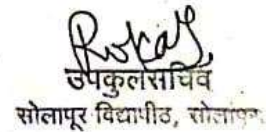 उपकुलसचिव
सोलापूर विद्यापीठ, सोलापूर.